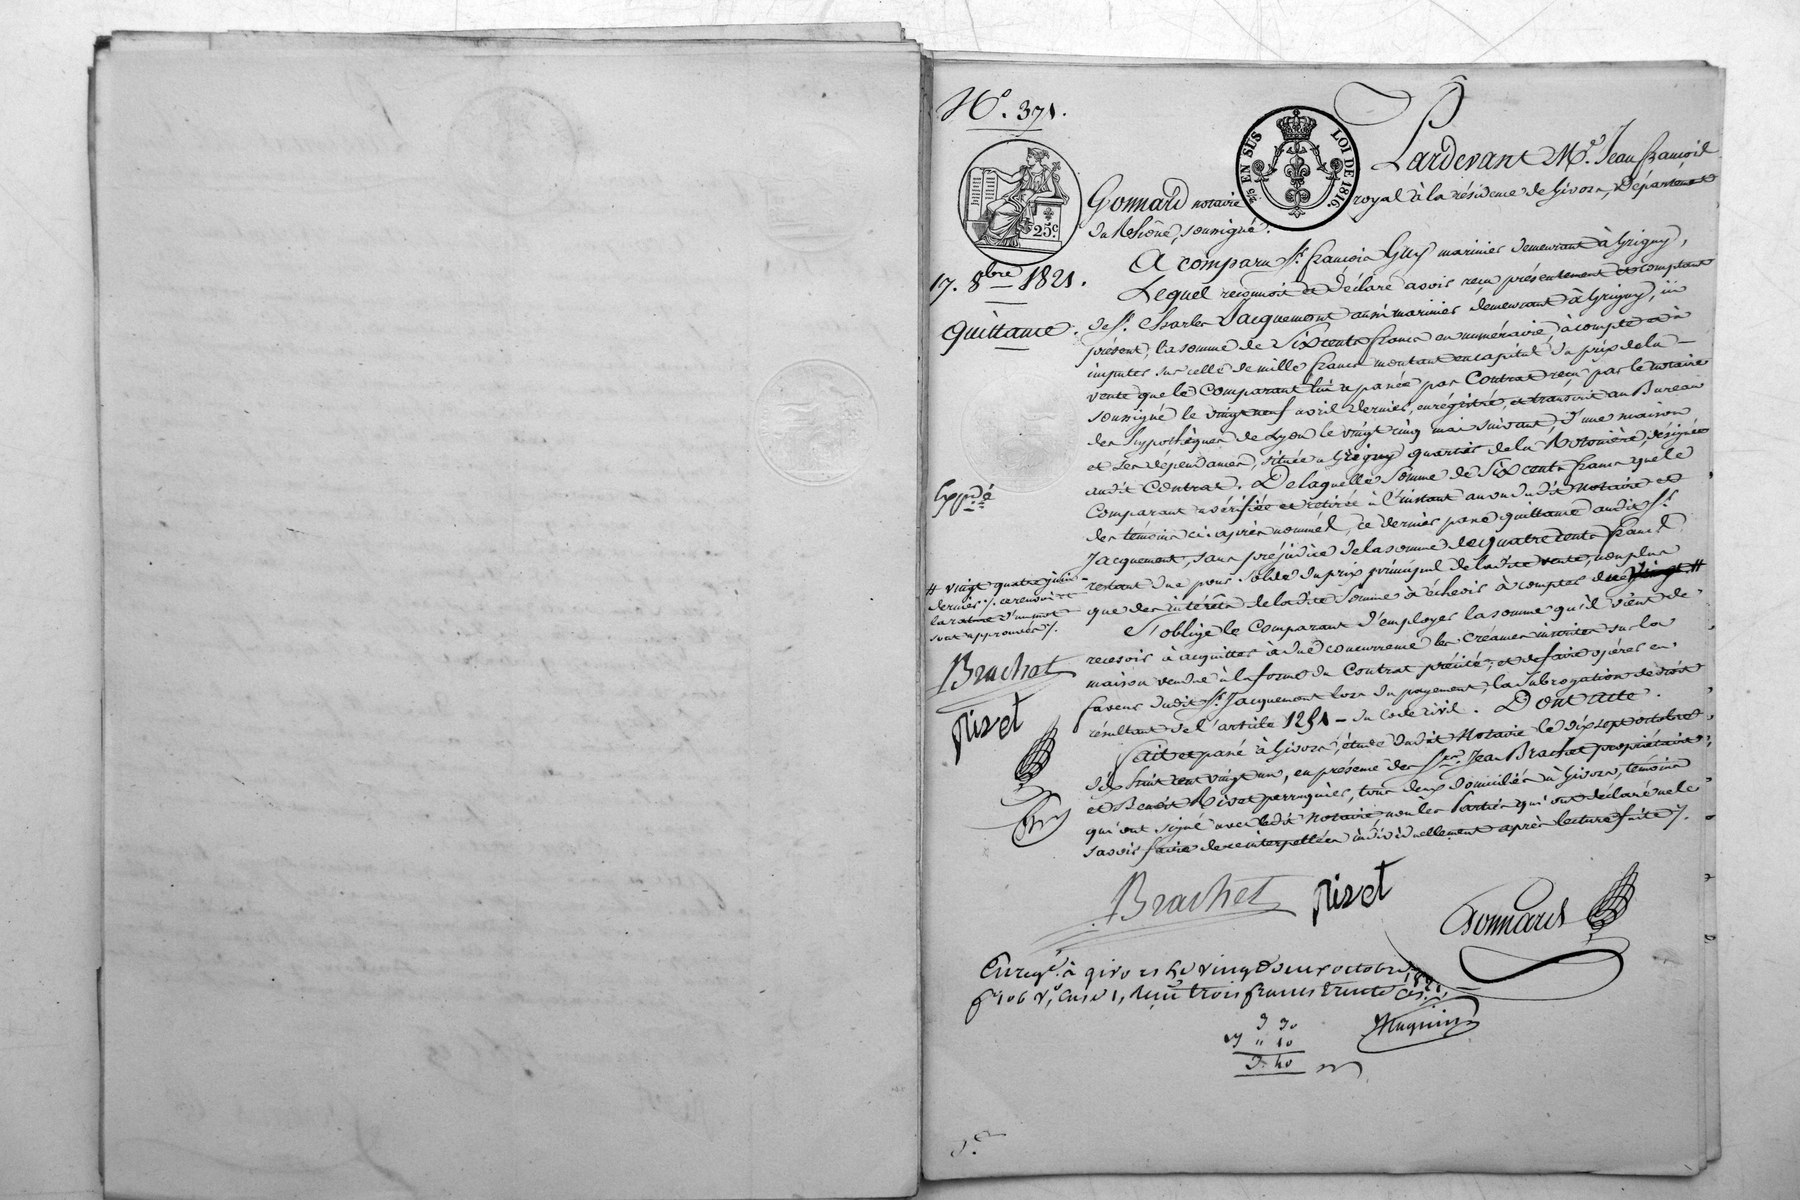 N.° 371.
⅖ EN SUS LOI DE 1816.
25.c
17. 8.bre 1821.
Quittance.
Exp.dé
Pardevant M.e Jean françois
Gonnard notaire royal à la résidence de Givors, Département
du Rhône, soussigné.
A comparu S.r françois Guy marinier demeurant à Grigny,
Lequel reconnoit et déclare avoir reçu présentement et comptant
de S.r Charles Jacquemont aussi marinier demeurant à Grigny, ici
présent, la somme de Six cents francs en numéraire, àcompte et à
imputer sur celle de mille francs montant en capital du prix de la
vente que le Comparant lui a passée par Contrat reçu par le notaire
soussigné le vingt neuf avril dernier, enrégistré, et transcrit au Bureau
des hypothèques de Lyon le vingt cinq mai suivant, d'une maison
et ses dépendances, située à Grigny quartier de la désignée
audit Contrat. De laquelle Somme de Six cents francs que le
Comparant a vérifiée et retirée à l'instant au vu dudit Notaire et
des témoins ci après nommés, ce dernier passe quittance audit S.r
Jacquemont, sans préjudice de la somme de quatre cents francs
restant due pour Solde du prix principal de ladite vente, non plus
que des intérêts de ladite Somme à échoir à compter du #
S'oblige le Comparant d'employer la somme qu'il vient de
recevoir à acquitter à due concurrence les créances inscrites sur la
maison vendue à la forme du Contrat précité, et de faire opérer en
faveur dudit S.r Jacquemont lors du payement, la Subrogation de droit
résultant de l'article 1251 du Code Civil. Dont acte.
fait et passé à Givors, étude dudit Notaire le dix sept octobre
dix huit cent vingt un, en présence des S.rs Jean Brachet propriétaire
et Benoît Rivet perruquier, tous deux domiciliés à Givors, témoins
qui ont signé avec ledit Notaire, non les Parties qui ont déclaré ne le
savoir faire de ce interpellées individuellement après lecture faite ./.
# vingt quatre juin
dernier ./. ce renvoi et
la rature d'un mot
sont approuvés ./.
Brachet
Rivet
Brachet Rivet Gonnard
Enreg.é à givors le vingt deux octobre 1821,
f.° 106 v.°, Case 1, Reçu trois francs trente c.es
3 30
" 10
3. 40